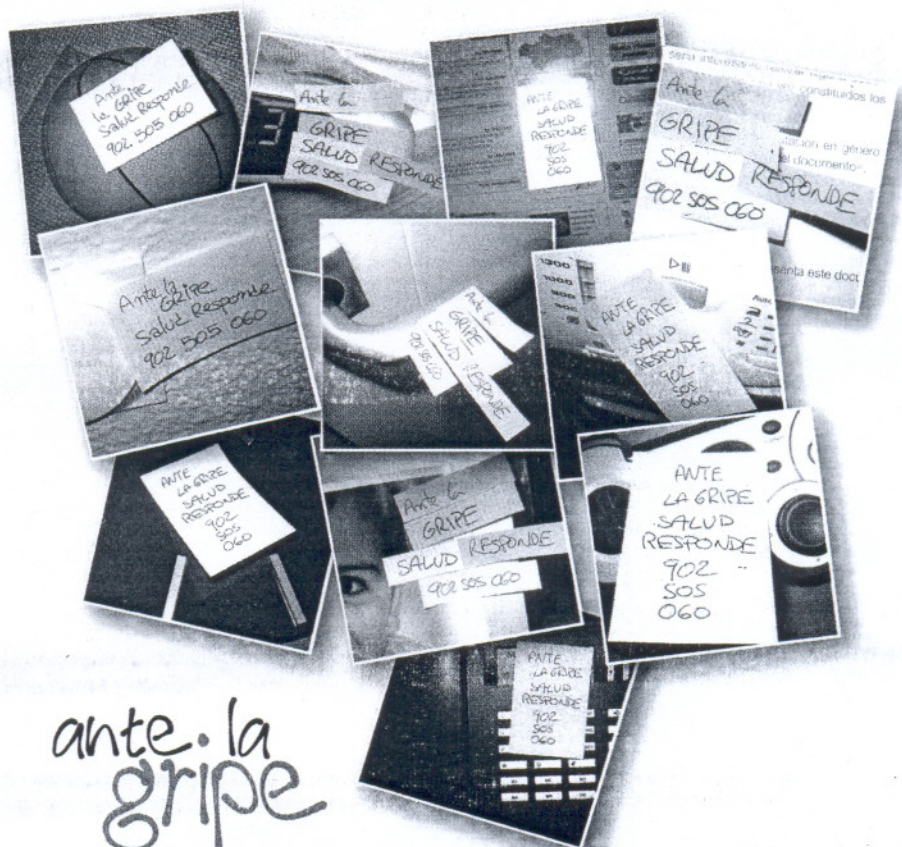 Ante
la GRIPE
Salud Responde
902 505 060
Ante la
GRIPE
SALUD RESPONDE
902 505 060
3
ANTE
LA GRIPE
SALUD
RESPONDE
902
505
060
constituidos los
Ante la
GRIPE
SALUD RESPONDE
902 505 060
tación en género
el documento».
senta este docu
Ante la
GRIPE
Salud Responde
902 505 060
Ante la
GRIPE
SALUD RESPONDE
902 505 060
1300
1000
ANTE
LA GRIPE
SALUD
RESPONDE
902
505
060
ANTE
LA GRIPE
SALUD
RESPONDE
902
505
060
Ante la
GRIPE
SALUD RESPONDE
902 505 060
ANTE
LA GRIPE
SALUD
RESPONDE
902
505
060
ANTE
LA GRIPE
SALUD
RESPONDE
902
505
060
ante la
gripe